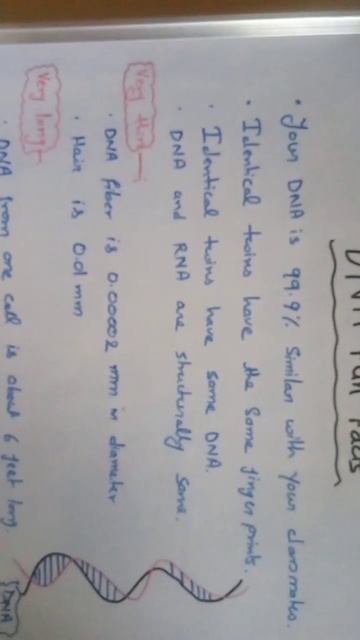 DNA Fun Facts
• Your DNA is 99.9% Similar with your classmates.
• Identical twins have the same finger prints.
• Identical twins have same DNA.
• DNA and RNA are structurally same.
Very thin
• DNA fiber is 0.00002 mm in diameter
• Hair is 0.01 mm
Very long
• DNA from one cell is about 6 feet long.
DNA